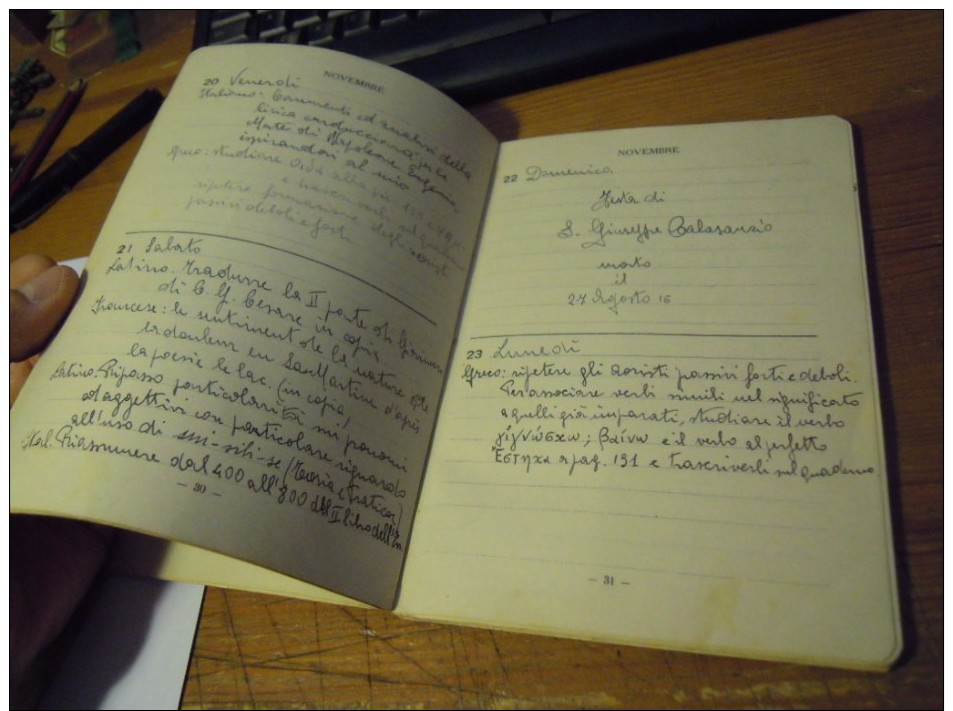 NOVEMBRE
20 Venerdì
Italiano: Commenti ed analisi della
lirica carducciana "per la
Morte di Napoleone Eugenio"
ispirandosi al mio
Greco: studiare alla pag.
e trascriverli sul quaderno
ripetere formazione degli aoristi
passivi deboli e forti
21 Sabato
Latino. Tradurre la II parte di
di C. G. Cesare in copia
Francese: le sentiment de la nature et de
la douleur en Lamartine d'après
la poesie le lac. (in copia)
Latino. Ripasso particolarità sui pronomi
ed aggettivi con particolare riguardo
all'uso di sui-sibi-se (teoria e pratica)
Ital. Riassumere dal 400 all'800 del II libro dell'
— 30 —
NOVEMBRE
22 Domenica
Festa di
S. Giuseppe Calasanzio
morto
il
27 Agosto 16
23 Lunedì
Greco: ripetere gli aoristi passivi forti e deboli.
Per associare verbi simili nel significato
a quelli già imparati, studiare il verbo
γίγνώσκω; βαίνω e il verbo al perfetto
Ἕστηκα a pag. 191 e trascriverli sul quaderno
— 31 —